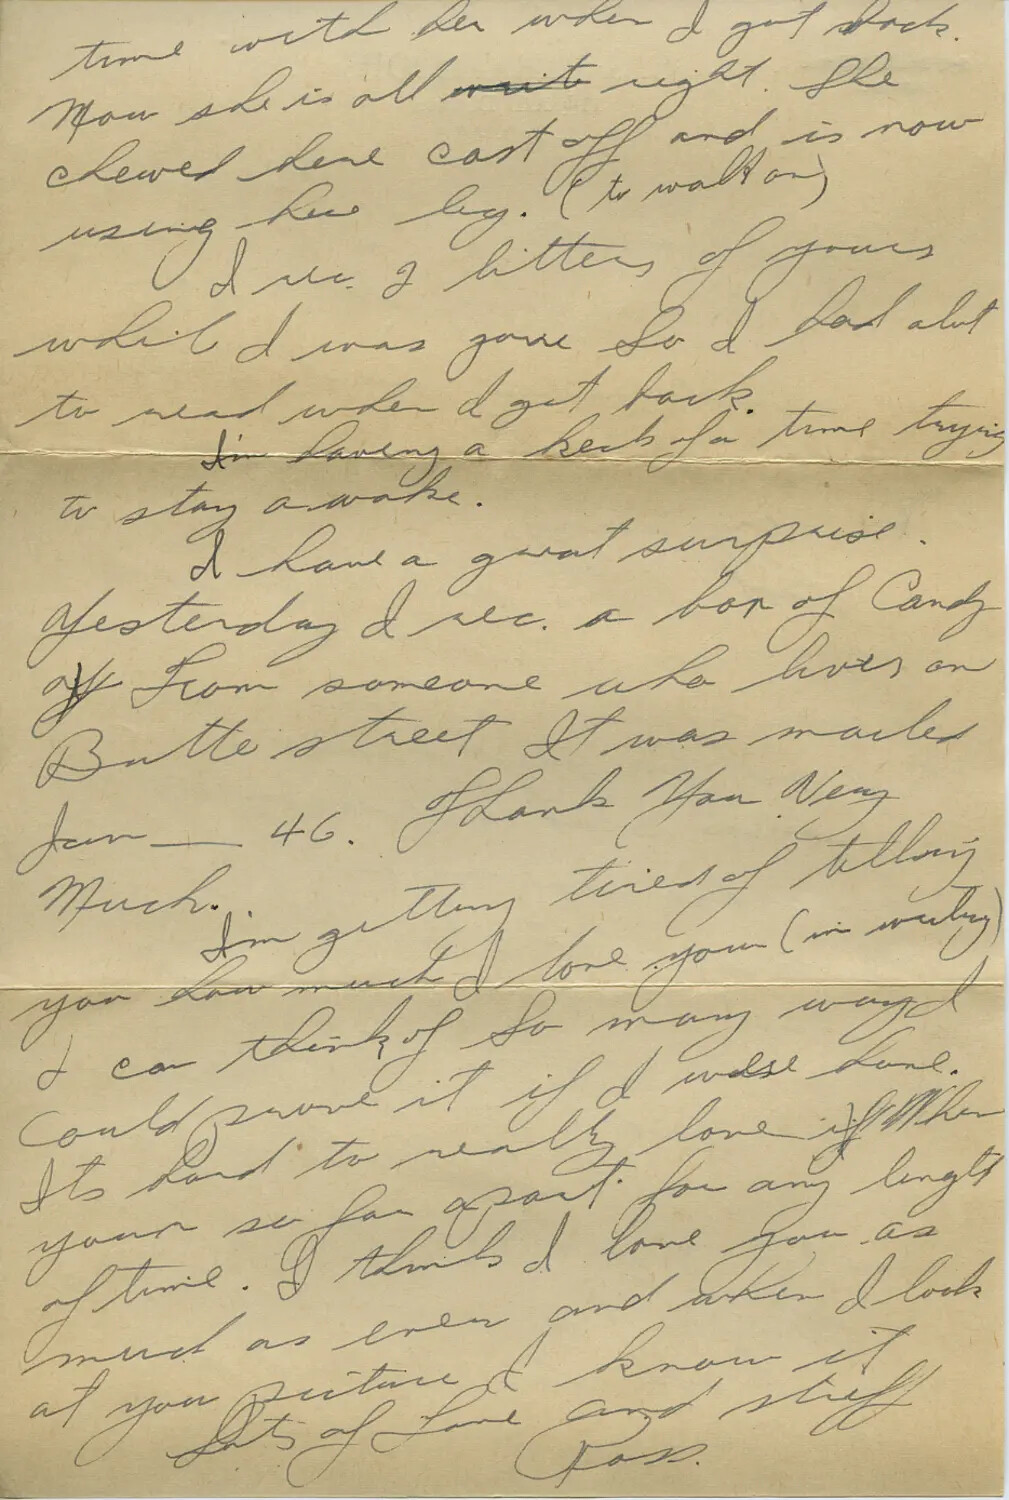 time with her when I got back.
Now she is all write right. She
chewed here cast off and is now
using here leg. (to walk on)
I rec. 2 litters of yours
whil I was gone So I had alot
to read when I got back.
I'm having a heck of a time trying
to stay awake.
I have a great surprise.
Yesterday I rec. a box of Candy
From someone who lives on
Butte street It was mailed
Jan — 46. Thank You Very
Much.
I'm getting tired of telling
you how much I love you (in writing)
I can think of So many ways I
Could prove it if I were home.
Its hard to really love When
your so far apart for any lenght
of time. I think I love you as
much as ever and when I look
at you picture I know it
Lots of Love and stuff
Ross.